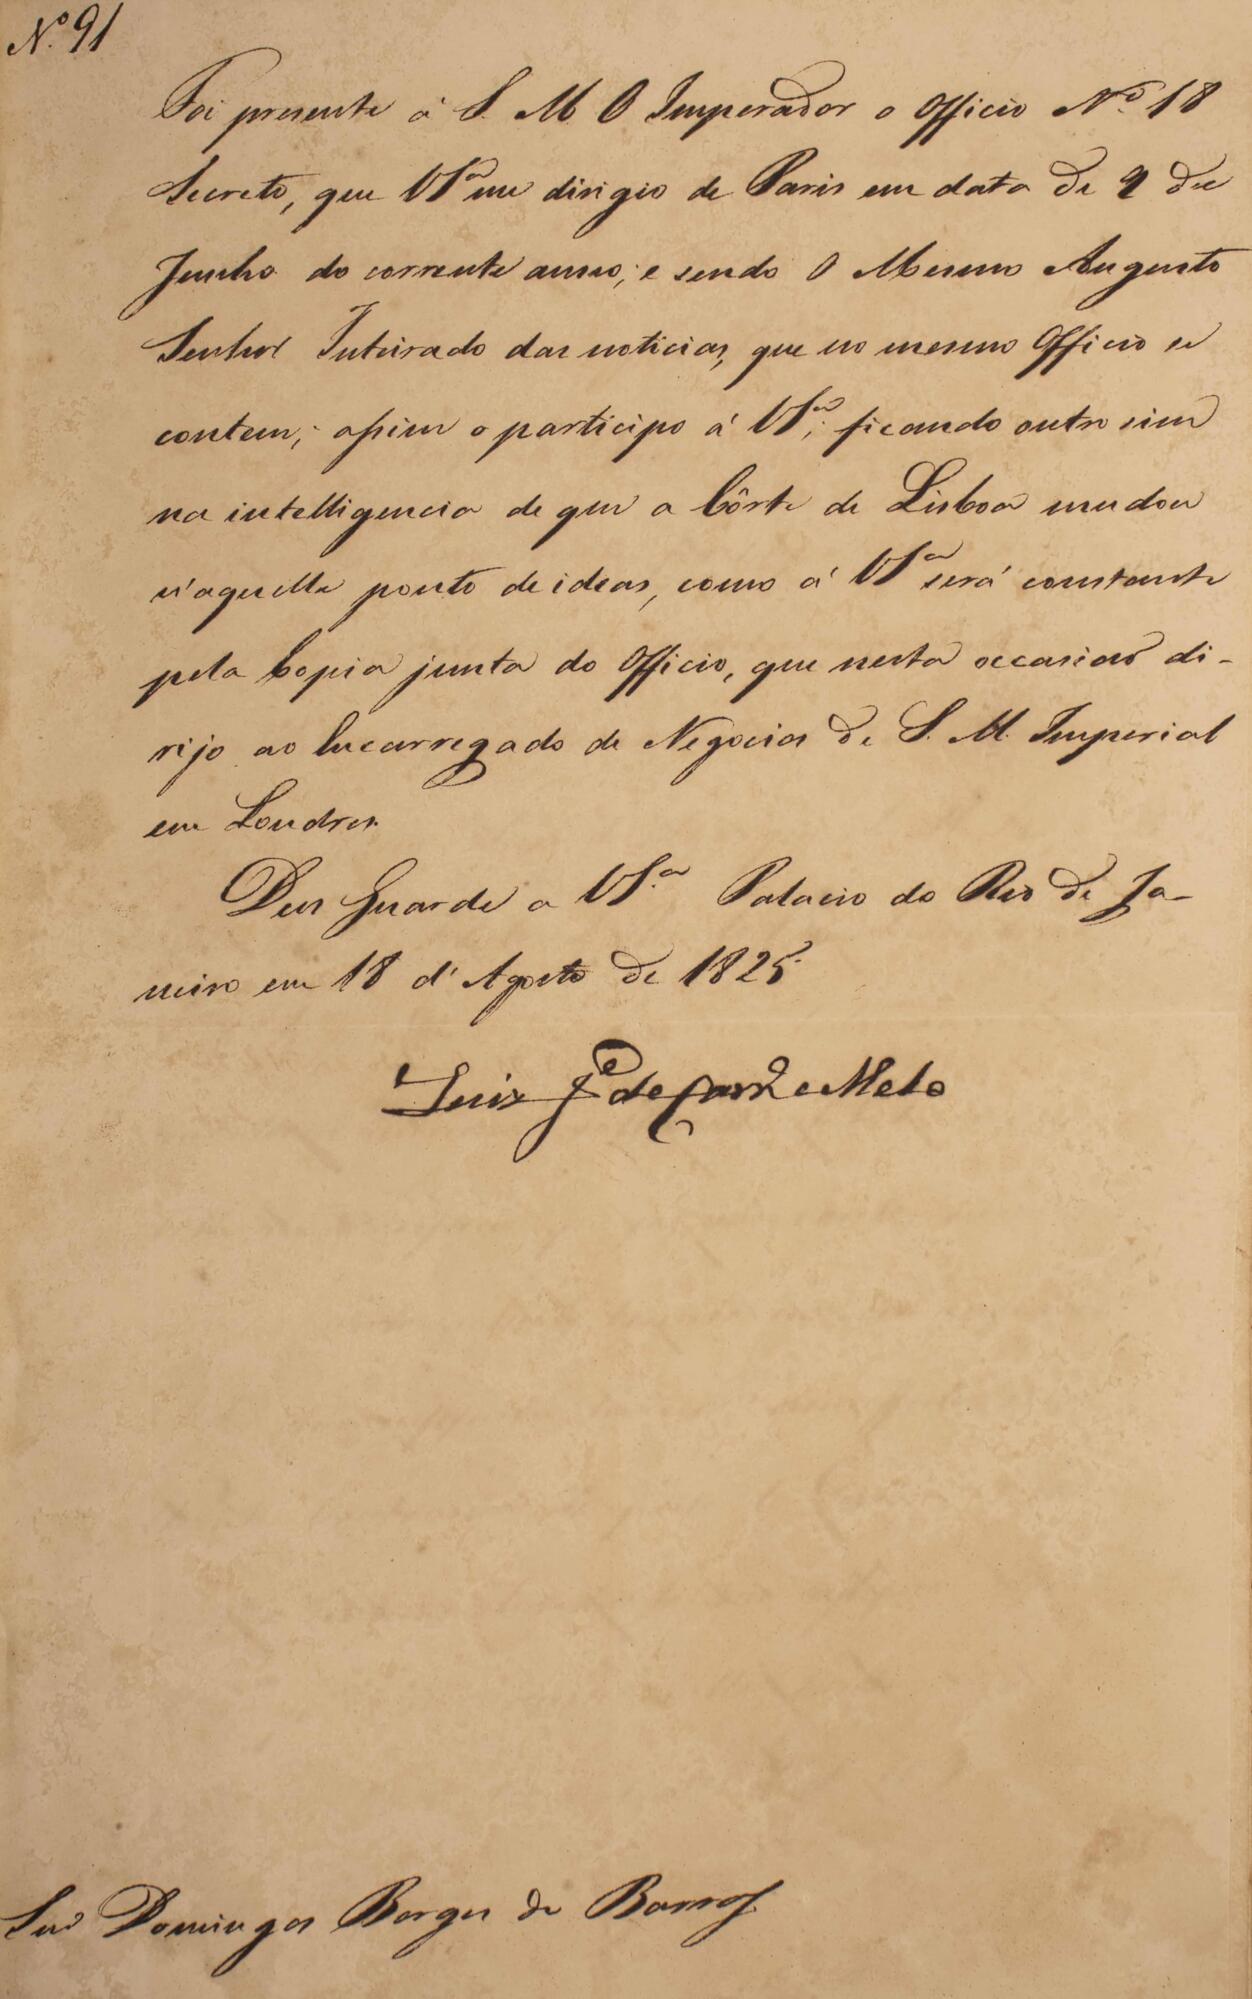 Nº 91
Foi presente á S. M. O Imperador o Officio Nº 18
Secreto, que VSª me dirigio de Paris em data de 9 de
Junho do corrente anno; e sendo O Mesmo Augusto
Senhor Inteirado das noticias, que no mesmo Officio se
contem; assim o participo á VSª; ficando outro sim
na intelligencia de que a Côrte de Lisboa mudou
n'aquelle ponto de ideas, como á VSª será constante
pela Copia junta do Officio, que nesta occasiaõ di-
rijo ao Encarregado de Negocios de S. M. Imperial
em Londres.
Deus Guarde a VS.ª Palacio do Rio de Ja-
neiro em 18 d'Agosto de 1825.
Luiz Jº de Carvº e Melo
Snr Domingos Borges de Barros